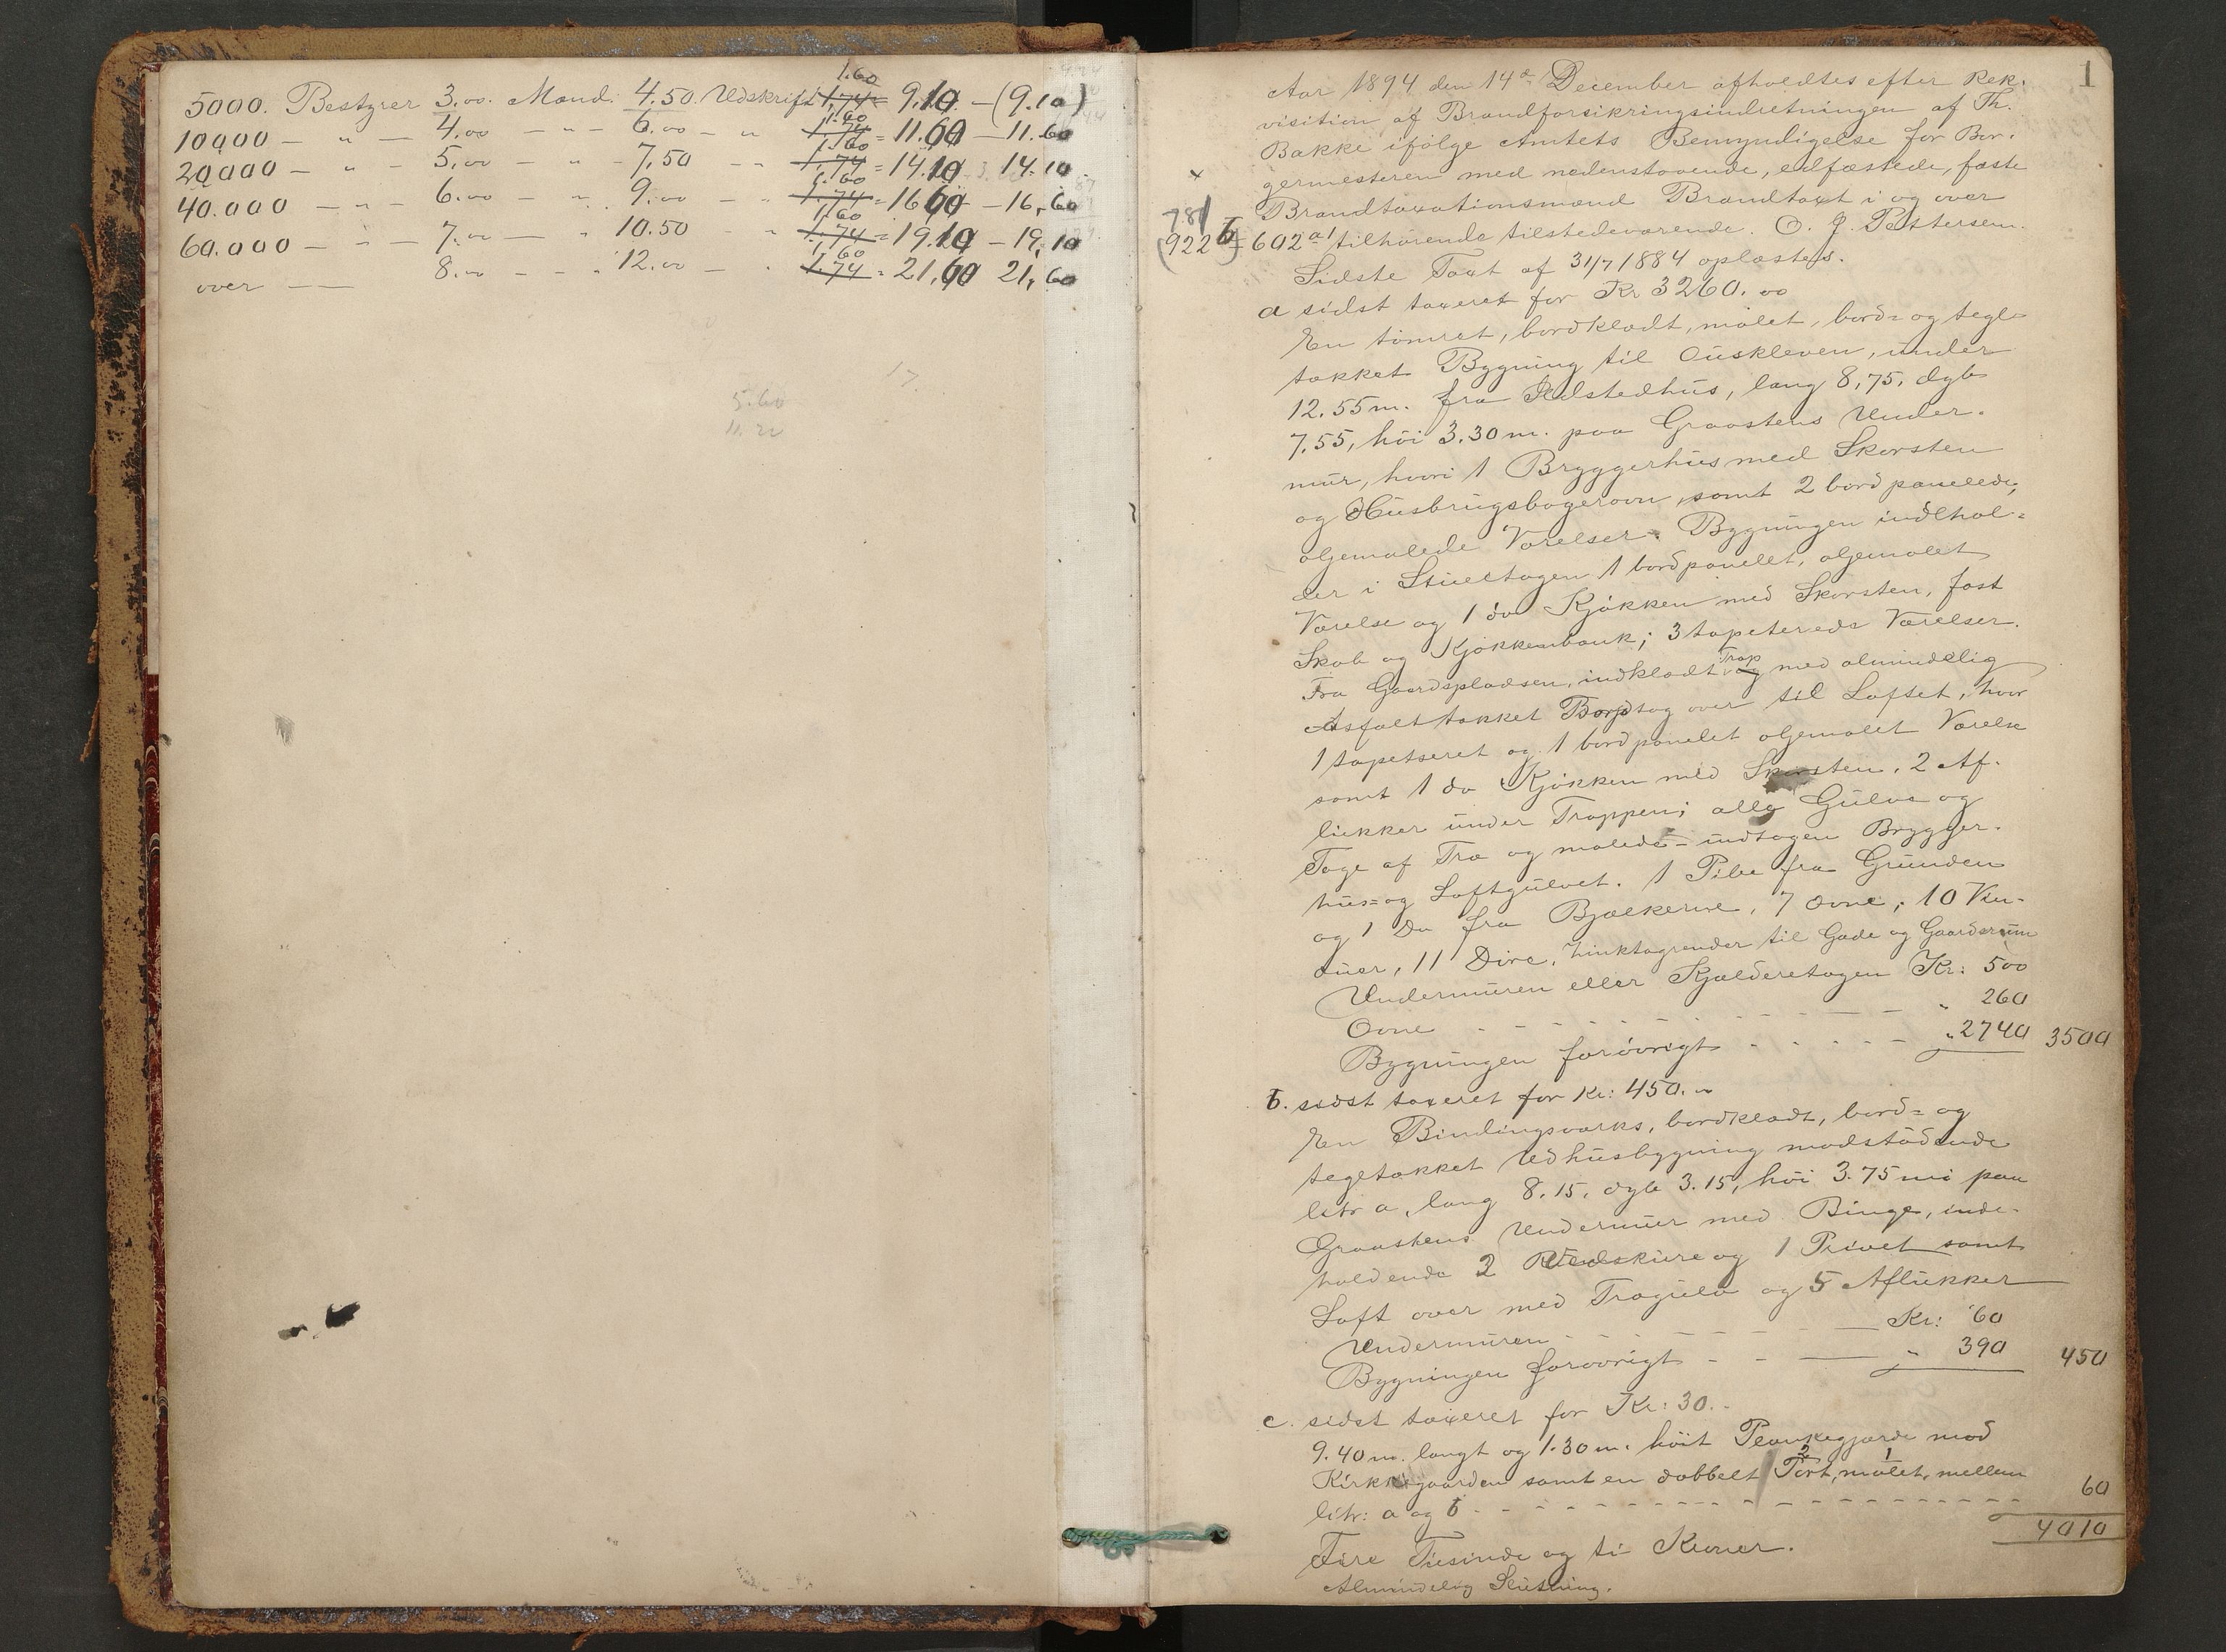 1.60
5000. Bestyrer 3.00. Mænd. 4.50. Udskrift 1.74 = 9.10. — (9.10)
1.60
10000 — " — 4.00 — " — 6.00 — " 1.74 = 11.60 — 11.60
1.60
20,000 — " — 5.00 — " — 7.50 — " 1.74 = 14.10 14.10
1.60
40.000 — " — 6.00 — " 9.00 — " 1.74 = 16 60 — 16,60
1.60
60.000 — " — 7.00 — " 10.50 — " 1.74 = 19.10 — 19,10
1.60
over — 8.00 — - - 12.00 — " 1.74 = 21.60 21,60
5.60
11.20
1
Aar 1894 den 14de December afholdtes efter Rek-
visition af Brandforsikringsindretningen af Th.
Bakke ifölge Amtets Bemyndigelse for Bor-
germesteren med nedenstaaende, edfæstede, faste
Brandtaxationsmænd Brandtaxt i og over
781
(922 b) 602 a1 tilhørende tilstedeværende. O. J. Pettersen.
Sidste Taxt af 31/7 1884 oplæstes.
a sidst taxeret for Kr 3260.00
En tömret, bordklædt, malet, bord= og tegl-
tækket Bygning til Ouskleven, under
12.55 m. fra Ildstedhus, lang 8,75, dyb
7,55, höi 3.30 m. paa Graastens Under-
mur, hvori 1 Bryggerhus med Skorsten
og Husbrugsbagerovn, samt 2 bordpanelede,
oljemalede Værelser. Bygningen indehol=
der i Stueetagen 1 bordpanelet, oljemalet
Værelse og 1 do Kjökken med Skorsten, fast
Skab og Kjökkenbænk; 3 tapeterede Værelser.
Fra Gaardspladsen, indklædt Trap og med almindelig
Asfalt tækket Bordtag over til Loftet, hvor
1 tapetseret og 1 bordpanelet oljemalet Værelse
samt 1 do Kjökken med Skorsten. 2 Af-
lukker under Trappen; alle Gulve og
Tage af Træ og malede - undtagen Brygger-
hus= og Loftgulvet. 1 Pibe fra Grunden
og 1 Do fra Bjælkerne, 7 Ovne, 10 Vin-
duer, 11 Döre, Zinktagrender til Gade og Gaardsrum
Undermuren eller Kjælderetagen Kr: 500
Ovne - - - - - - - - " 260
Bygningen forövrigt - - - - - " 2740 3500
b. sidst taxeret for Kr: 450.
En Bindingsværks, bordklædt, bord= og
tegltækket Udhusbygning modstödende
litr a, lang 8.15, dyb 3.15, höi 3.75 m. paa
Graastens Undermur med Binge, inde-
holdende 2 Vedskure og 1 Privet samt
Loft over med Trægulv og 5 Aflukker
Undermuren - - - - - Kr: 60
Bygningen forövrigt - - " 390 450
c. sidst taxeret for Kr: 30.-
9.40 m. langt og 1.30 m. höit Plankegjærde mod
2 1
Kirkegaarden samt en dobbelt Port, malet, mellem
litr: a og b - - - - - - - - - - 60
4010
Fire Tusinde og ti Kroner.
Almindelig Slutning.